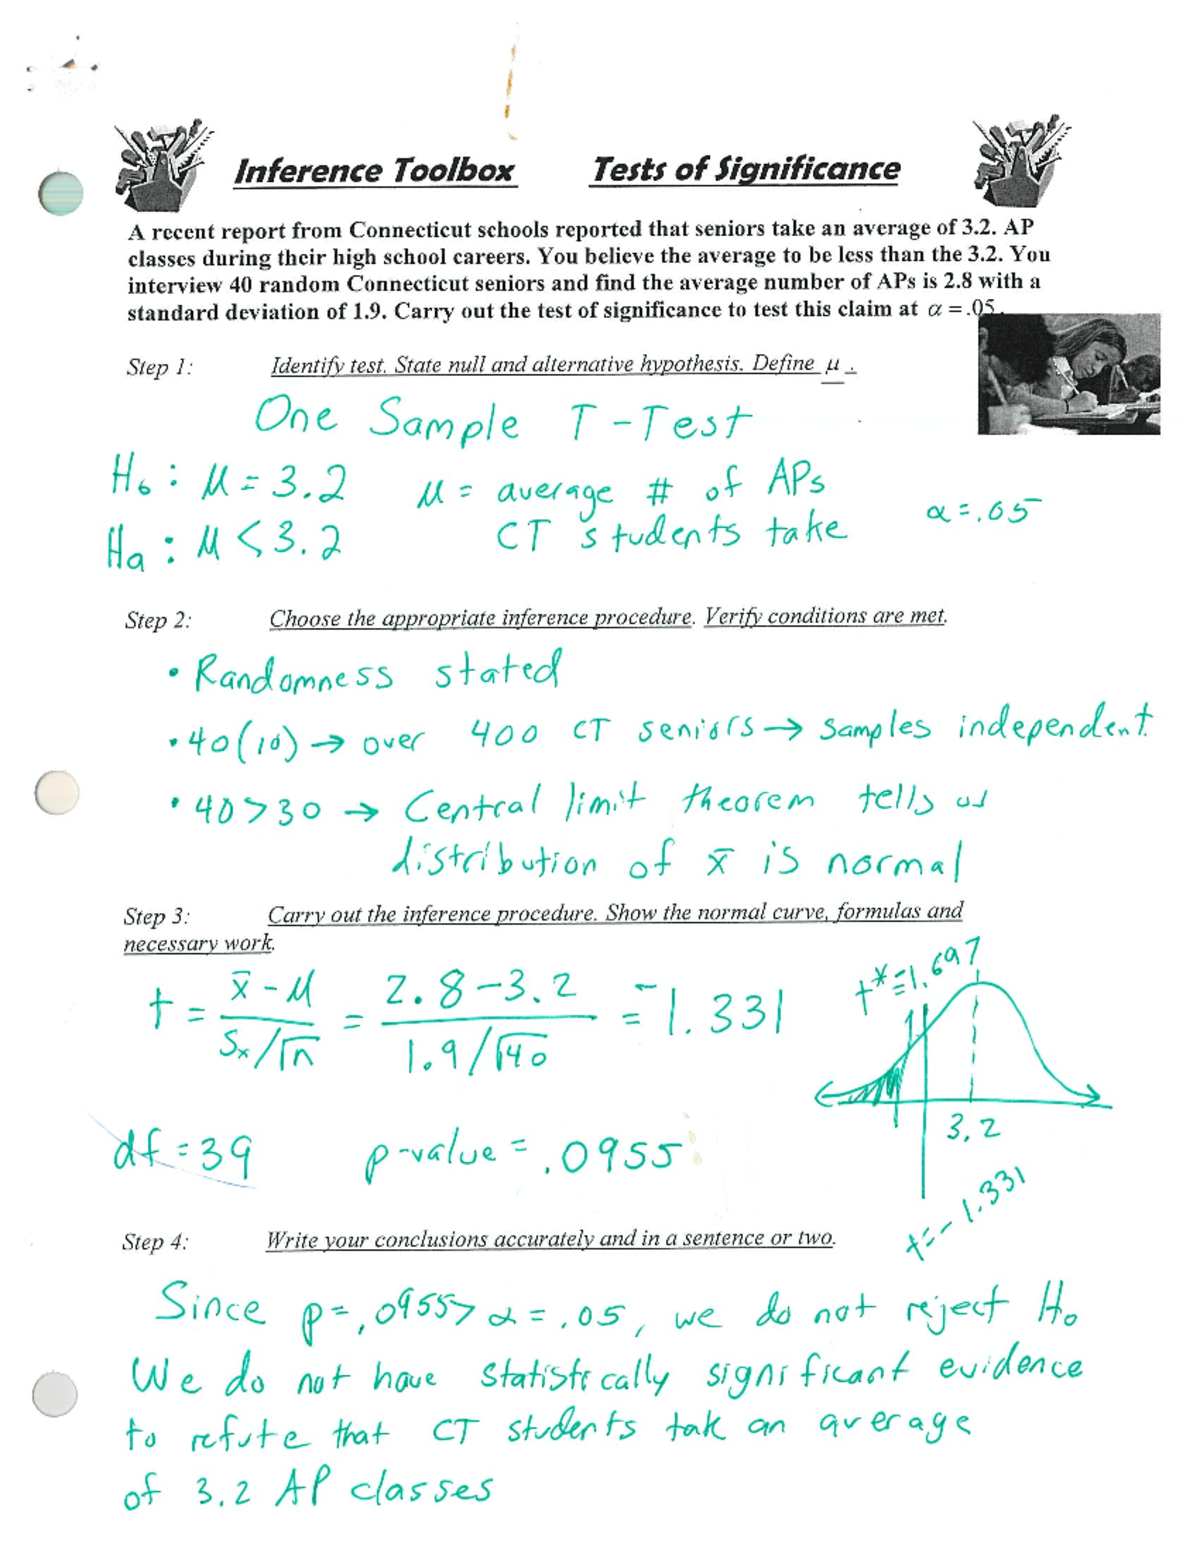 Inference Toolbox Tests of Significance
A recent report from Connecticut schools reported that seniors take an average of 3.2. AP
classes during their high school careers. You believe the average to be less than the 3.2. You
interview 40 random Connecticut seniors and find the average number of APs is 2.8 with a
standard deviation of 1.9. Carry out the test of significance to test this claim at α = .05.
Step 1: Identify test. State null and alternative hypothesis. Define μ.
One Sample T-Test
H₀: μ = 3.2 μ = average # of APs
Ha: μ < 3.2 CT students take α = .05
Step 2: Choose the appropriate inference procedure. Verify conditions are met.
• Randomness stated
• 40(10) → over 400 CT seniors → samples independent
• 40 > 30 → Central limit theorem tells us
distribution of x̄ is normal
Step 3: Carry out the inference procedure. Show the normal curve, formulas and
necessary work.
t = (x̄ - μ)/(Sx/√n) = (2.8 - 3.2)/(1.9/√40) = -1.331
t* = 1.697
3.2
t = -1.331
df = 39 p-value = .0955
Step 4: Write your conclusions accurately and in a sentence or two.
Since p = .0955 > α = .05, we do not reject H₀
We do not have statistically significant evidence
to refute that CT students take an average
of 3.2 AP classes